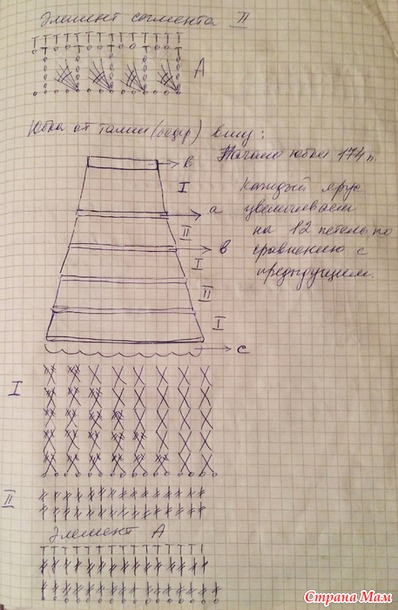 Элемент сегмента II
A
Юбка от талии (бедер) вниз:
Начало юбки 174 п.
Каждый ярус
увеличиваем
на 12 петель по
сравнению с
предыдущим.
в
I
а
II
в
I
II
I
с
I
II
Элемент А
Страна Мам